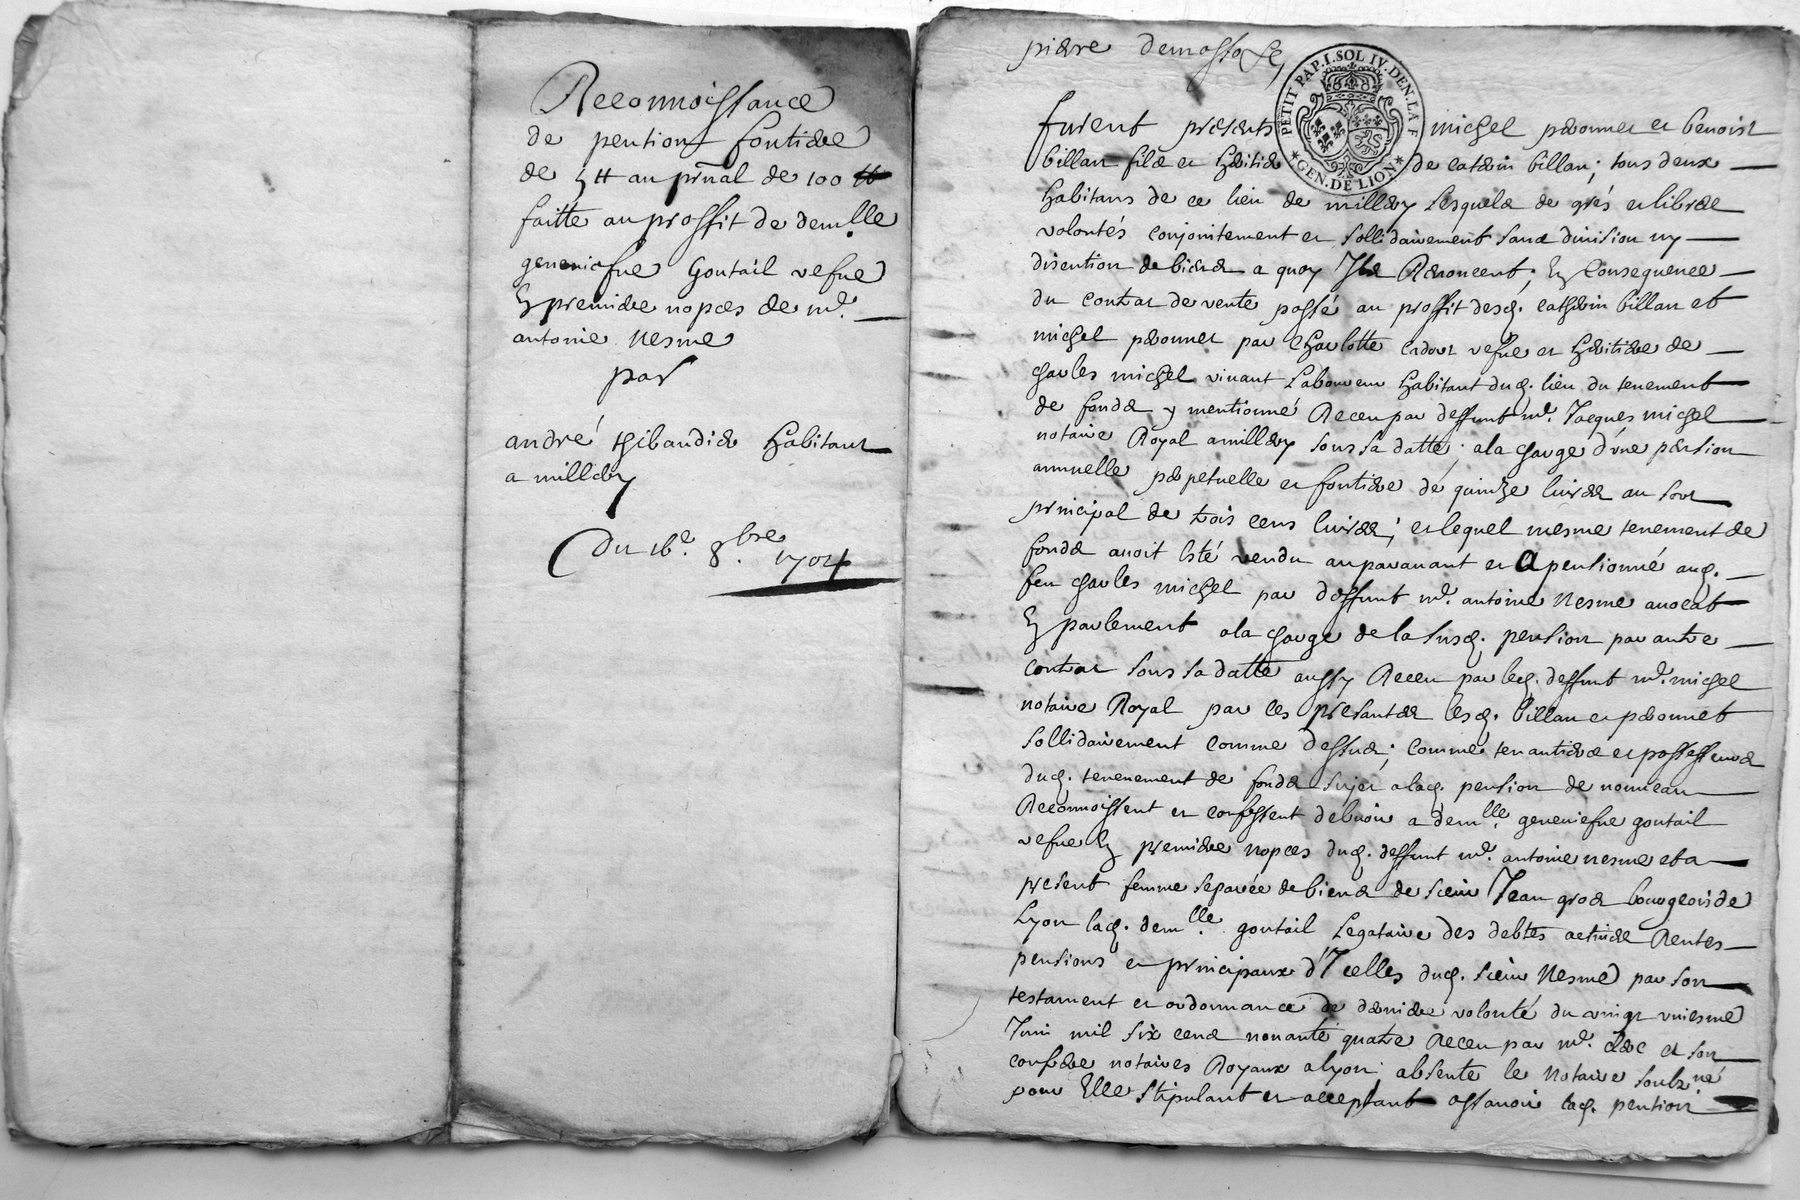 Reconnoissance
de pention fontiere
de 5 ₶ au prñal de 100 ₶
faitte au proffit de demlle
geneniefue Goutail vefue
En premiere nopces de mr.
antoine Nesme
par
andré thibaudier habitant
a millery
Du 16e. 8bre. 1704
pierre
PETIT PAP. I. SOL IV. DEN. LA F
GEN. DE LION
furent presents michel peronnet et benoist
billan filz et heritier de catherin billan; tous deux
habitans de ce lieu de millery Lesquelz de grés et libre
volontés conjoinitement et sollidairement sans division ny
discution de biens a quoy Ilz Renoncent; En Consequence
du contrat de vente passé au proffit desd. catherin billan et
michel peronnet par Charlotte vefue et heritiere de
charles michel vivant Laboureur habitant dud. lieu du tenement
de fonds y mentionné Receu par deffunt me. Jacques michel
notaire Royal a millery sous sa datte; a la charge d'une pension
annuelle perpetuelle et fontiere de quinze livres au sort
principal de trois cens livres; et lequel mesme tenement de
fonds auoit Esté vendu auparavant et apensionné aud.
feu charles michel par deffunt me. antoine Nesme auocat
En parlement a la charge de la susd. pension par autre
contrat sous sa datte aussy Receu par led. deffunt me. michel
notaire Royal par ces presentes lesd. billan et peronnet
sollidairement comme dessus; comme tenantiers et possesseurs
dud. tenenement de fonds sujet a lad. pension de nouueau
Reconnoissent et confessent debuoir a demlle. geneniefue goutail
vefue En premiere nopces dud. deffunt me. antoine nesme et a
present femme separée de biens de sieur Jean gros bourgeois de
Lyon lad. demlle. goutail Legataire des debtes actiues Rentes
pensions et principaux d'Icelles dud. sieur Nesme par son
testament et ordonnance de derniere volonté du vingt vniesme
Juin mil six cens nonante quatre Receu par me. et son
confrere notaires Royaux a lyon absente le Notaire soubzné
pour Elle stipulant et acceptant assauoir lad. pention